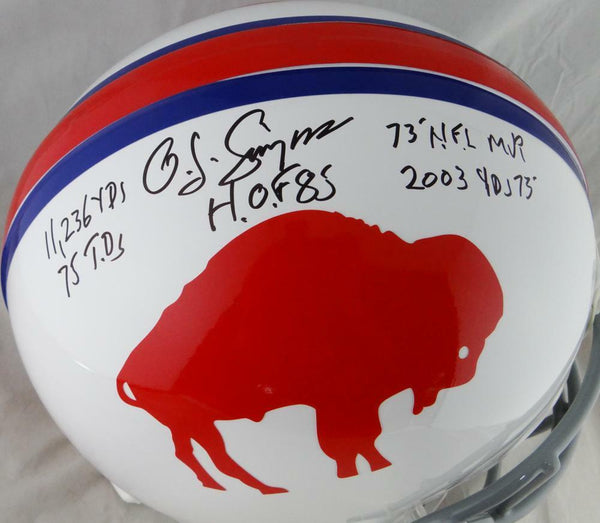 O.J. Simpson
H.O.F 85
11,236 YDS
75 T.Ds
73' N.F.L MVP
2003 YDS 73'